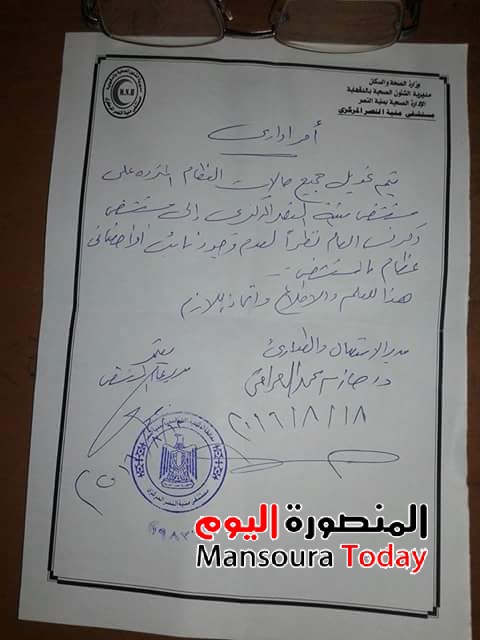 وزارة الصحة والسكان
مديرية الشئون الصحية بالدقهلية
الإدارة الصحية بمنية النصر
مستشفى منية النصر المركزى
أمر إدارى
يتم تحويل جميع حالات العظام المترددة على
مستشفى منية النصر المركزى إلى مستشفى
دكرنس العام نظراً لعدم وجود نائب أو اخصائى
عظام بالمستشفى
هذا للعلم والاطلاع واتخاذ اللازم
مدير الاستقبال والطوارئ
يعتمد
مدير عام المستشفى
د. حازم محمد
٢٠١٦/٨/١٨
مستشفى منية النصر المركزى
المنصورة اليوم
Mansoura Today